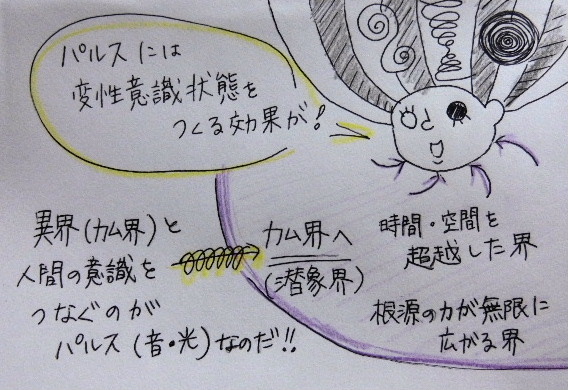 パルスには
変性意識状態を
つくる効果が!
異界(カム界)と
人間の意識を
つなぐのが
パルス(音・光)なのだ!!
カム界へ
(潜象界)
時間・空間を
超越した界
根源の力が無限に
広がる界